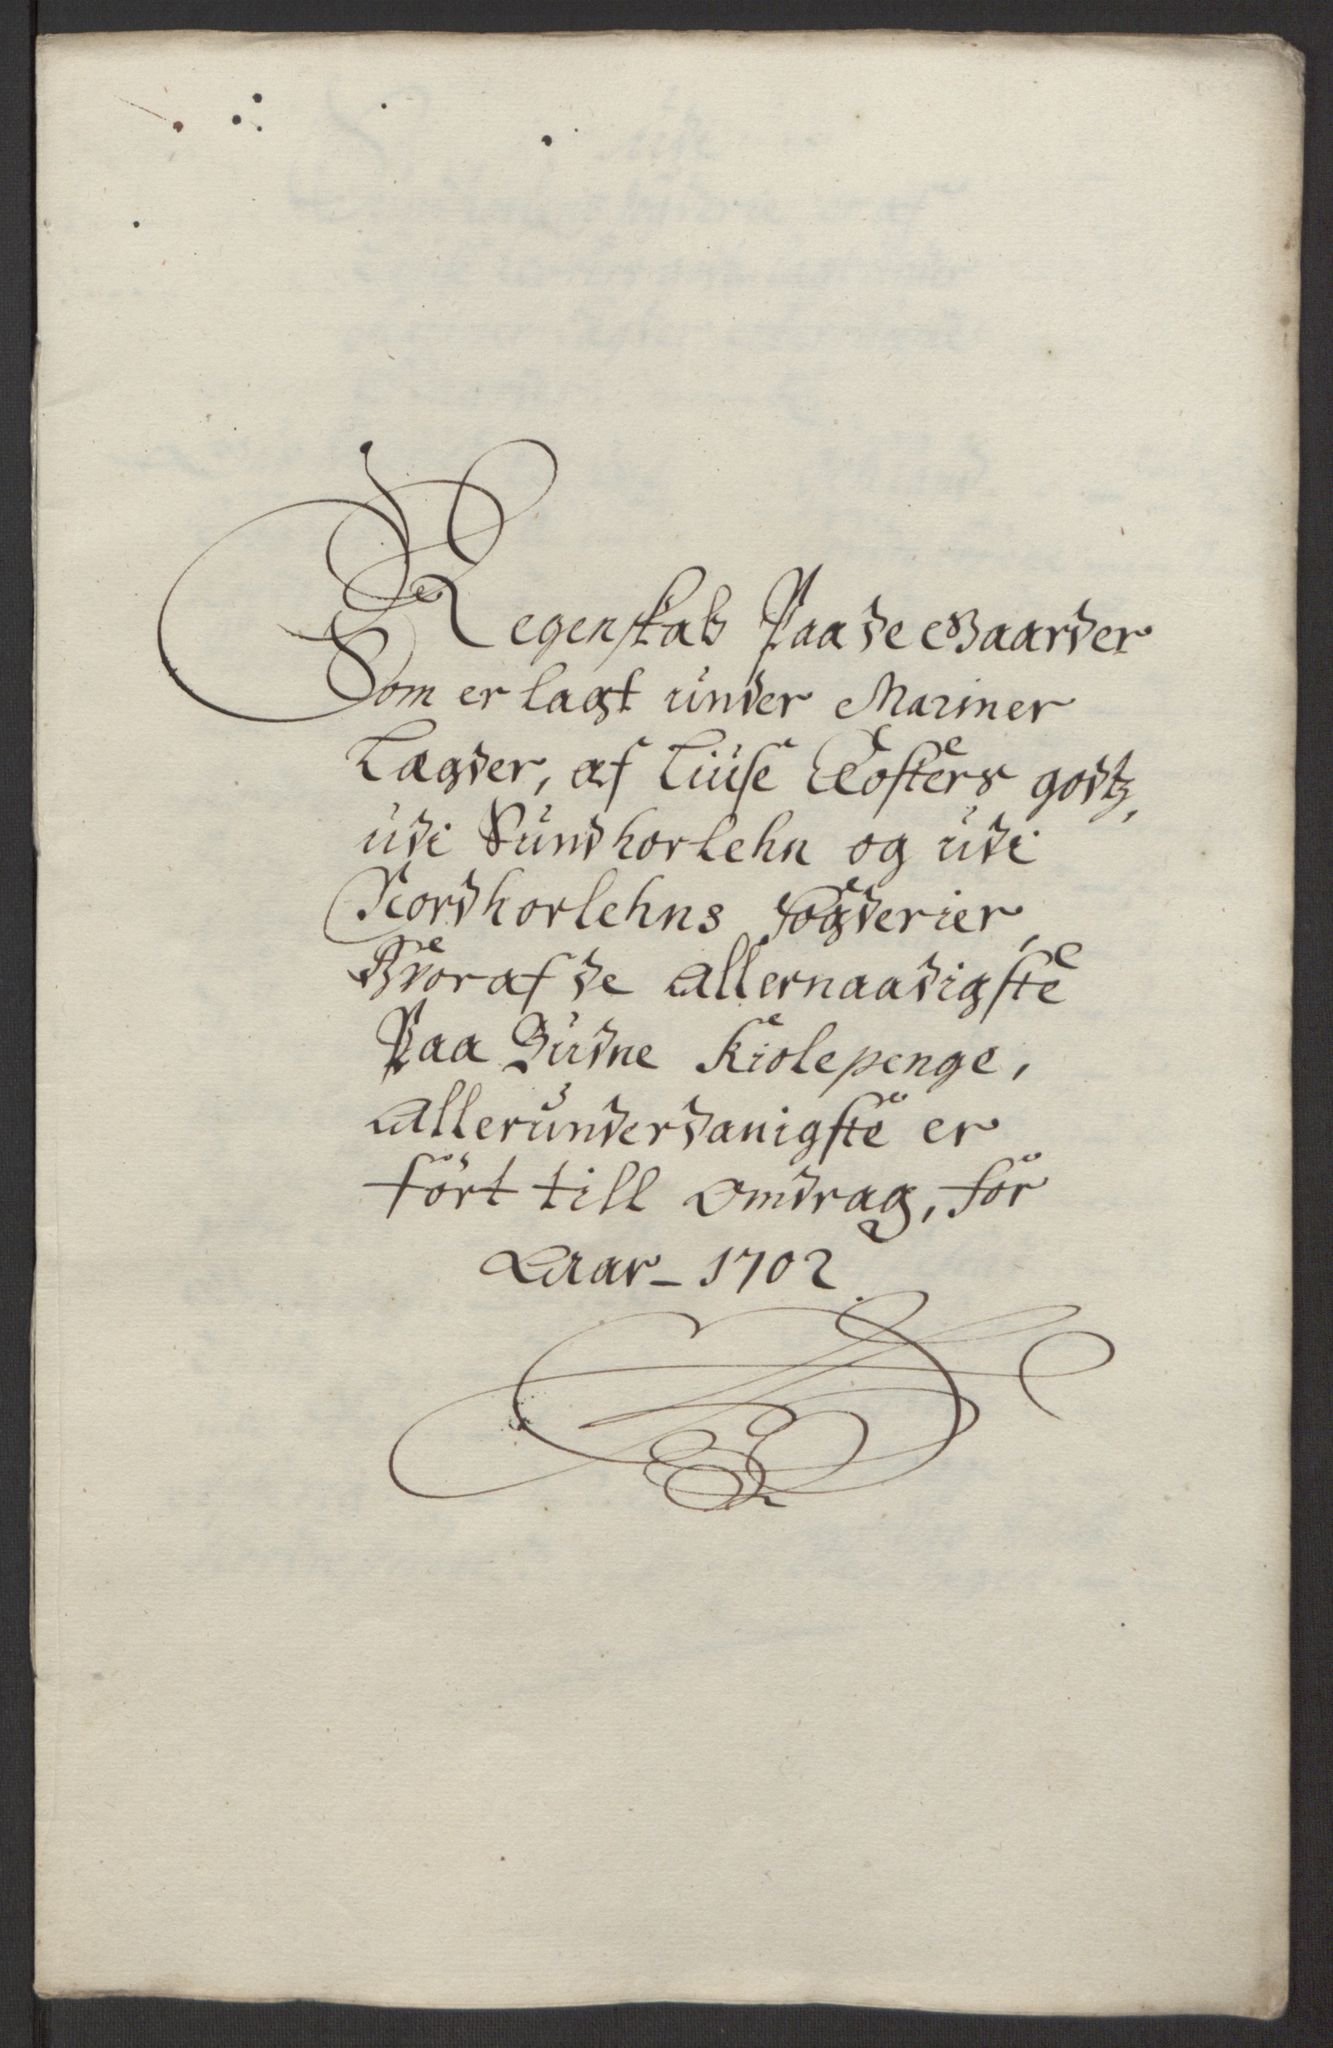 Regenskab Paa de Gaarder
Som er lagt under Mariner
Lægder, af Liuse Closters godtz,
udi Sundhorlehn og udi
Nordhorlehns fogderier,
Hvoraf de Allernaadigste
Paa Budne Kiolepenge,
Allerunderdanigste er
fört till Omdrag, for
Aar 1702